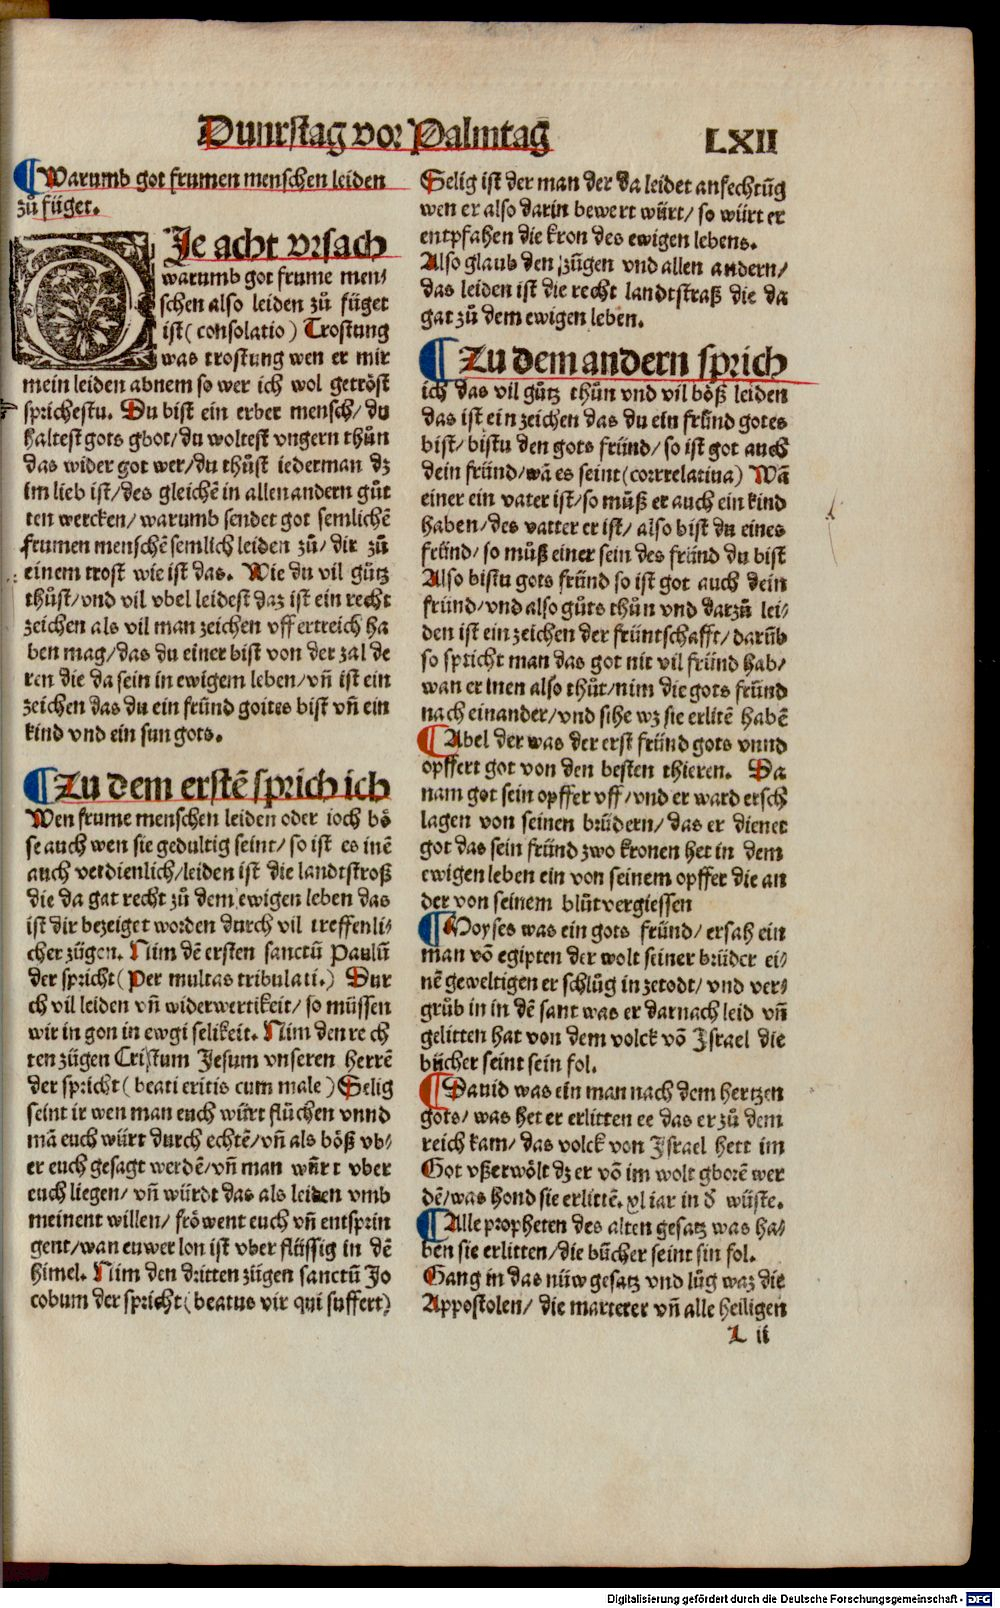 Dunrstag vor Palmtaḡ LXII
¶ Warumb got frumen menschen leiden
zů füget.
DIe acht vrsach
warumb got frume men⸗
schen also leiden zů füget
ist (consolatio) Trostung
was trostung wen er mir
mein leiden abnem so wer ich wol getröst
sprichestu. Du bist ein erber mensch/ du
haltest gots gbot/ du woltest vngern thůn
das wider got wer/ du thůst iederman dz
im lieb ist/ des gleichē in allen andern gůt
ten wercken/ warumb sendet got semlichē
frumen menschē semlich leiden zů/ dir zů
einem trost wie ist das. Wie du vil gůtz
thůst/ vnd vil vbel leidest daz ist ein recht
zeichen als vil man zeichen vff ertreich ha
ben mag/ das du einer bist von der zal de
ren die da sein in ewigem leben/ vn̄ ist ein
zeichen das du ein fründ goites bist vn̄ ein
kind vnd ein sun gots.
¶ Zu dem erstē sprich ich
Wen frume menschen leiden oder ioch bö
se auch wen sie gedultig seint/ so ist es inē
auch verdienlich/ leiden ist die landtstroß
die da gat recht zů dem ewigen leben das
ist dir bezeiget worden durch vil treffenli⸗
cher zügen. Nim dē ersten sanctū Paulū
der spricht (Per multas tribulati.) Dur
ch vil leiden vn̄ widerwertikeit/ so müssen
wir in gon in ewgi selikeit. Nim den re ch
ten zügen Cristum Jesum vnseren herrē
der spricht (beati eritis cum male) Selig
seint ir wen man euch würt flůchen vnnd
mā euch würt durch echtē/ vn̄ als böß vb⸗
er euch gesagt werdē/ vn̄ man würt vber
euch liegen/ vn̄ würdt das als leiden vmb
meinent willen/ fröwent euch vn̄ entsprin
gent/ wan euwer lon ist vber flüssig in dē
himel. Nim den dritten zügen sanctū Jo
cobum der spricht (beatus vir qui suffert)
Selig ist der man der da leidet anfechtūg
wen er also darin bewert würt/ so würt er
entpfahen die kron des ewigen lebens.
Also glaub den zügen vnd allen andern/
das leiden ist die recht landtstraß die da
gat zů dem ewigen leben.
¶ Zu dem andern sprich
ich das vil gůtz thůn vnd vil böß leiden
das ist ein zeichen das du ein fründ gotes
bist/ bistu den gots fründ/ so ist got auch
dein fründ/ wā es seint (correlatiua) Wā
einer ein vater ist/ so můß er auch ein kind
haben/ des vatter er ist/ also bist du eines
fründ/ so můß einer sein des fründ du bist
Also bistu gots fründ so ist got auch dein
fründ/ vnd also gůts thůn vnd darzů lei⸗
den ist ein zeichen der früntschafft/ darūb
so spricht man das got nit vil fründ hab/
wan er inen also thůt/ nim die gots fründ
nach einander/ vnd sihe wz sie erlitē habē
¶ Abel der was der erst fründ gots vnnd
opffert got von den besten thieren. Da
nam got sein opffer vff/ vnd er ward ersch
lagen von seinen brüdern/ das er dienet
got das sein fründ zwo kronen het in dem
ewigen leben ein von seinem opffer die an
der von seinem blůtvergiessen
¶ Moyses was ein gots fründ/ er sah ein
man vō egipten der wolt seiner brüder ei⸗
nē geweltigen er schlůg in zetodt/ vnd ver⸗
grůb in in dē sant was er darnach leid vn̄
gelitten hat von dem volck vō Israel die
bücher seint sein fol.
¶ Dauid was ein man nach dem hertzen
gots/ was het er erlitten ee das er zů dem
reich kam/ das volck von Israel hett im
Got vßerwölt dz er vō im wolt gborē wer
dē/ was hond sie erlittē. xl iar in d̕ wüste.
¶ Alle propheten des alten gesatz was ha⸗
ben sie erlitten/ die bücher seint sin fol.
Gang in das nüw gesatz vnd lůg waz die
Appostolen/ die marterer vn̄ alle heiligen
L ii
Digitalisierung gefördert durch die Deutsche Forschungsgemeinschaft - DFG